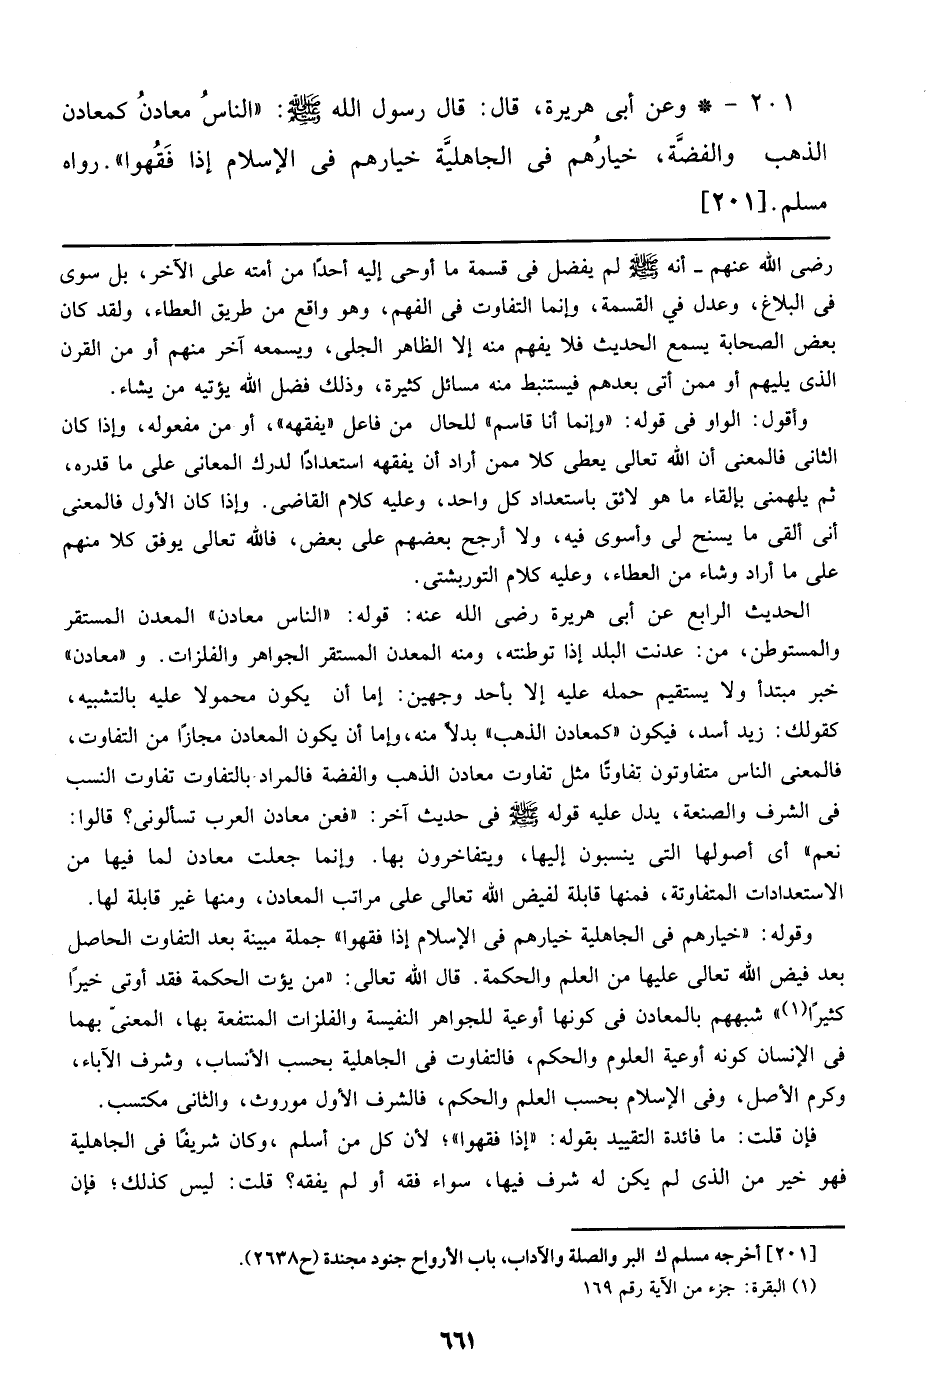 ٢٠١ - * وعن أبى هريرة، قال: قال رسول الله ﷺ: «الناسُ معادنُ كمعادن
الذهب والفضَّة، خيارُهم فى الجاهليَّة خيارهم فى الإسلام إذا فَقُهوا». رواه
مسلم. [٢٠١]
رضى الله عنهم ـ أنه ﷺ لم يفضل فى قسمة ما أوحى إليه أحدًا من أمته على الآخر، بل سوى
فى البلاغ، وعدل في القسمة، وإنما التفاوت فى الفهم، وهو واقع من طريق العطاء، ولقد كان
بعض الصحابة يسمع الحديث فلا يفهم منه إلا الظاهر الجلى، ويسمعه آخر منهم أو من القرن
الذى يليهم أو ممن أتى بعدهم فيستنبط منه مسائل كثيرة، وذلك فضل الله يؤتيه من يشاء.
وأقول: الواو فى قوله: «وإنما أنا قاسم» للحال من فاعل «يفقهه»، أو من مفعوله، وإذا كان
الثانى فالمعنى أن الله تعالى يعطى كلا ممن أراد أن يفقهه استعدادًا لدرك المعانى على ما قدره،
ثم يلهمنى بإلقاء ما هو لائق باستعداد كل واحد، وعليه كلام القاضى. وإذا كان الأول فالمعنى
أنى ألقى ما يسنح لى وأسوى فيه، ولا أرجح بعضهم على بعض، فالله تعالى يوفق كلا منهم
على ما أراد وشاء من العطاء، وعليه كلام التوربشتى.
الحديث الرابع عن أبى هريرة رضى الله عنه: قوله: «الناس معادن» المعدن المستقر
والمستوطن، من: عدنت البلد إذا توطنته، ومنه المعدن المستقر الجواهر والفلزات. و «معادن»
خبر مبتدأ ولا يستقيم حمله عليه إلا بأحد وجهين: إما أن يكون محمولا عليه بالتشبيه،
كقولك: زيد أسد، فيكون «كمعادن الذهب» بدلاً منه، وإما أن يكون المعادن مجازًا من التفاوت،
فالمعنى الناس متفاوتون تفاوتًا مثل تفاوت معادن الذهب والفضة فالمراد بالتفاوت تفاوت النسب
فى الشرف والصنعة، يدل عليه قوله ﷺ فى حديث آخر: «فعن معادن العرب تسألونى؟ قالوا:
نعم» أى أصولها التى ينسبون إليها، ويتفاخرون بها. وإنما جعلت معادن لما فيها من
الاستعدادات المتفاوتة، فمنها قابلة لفيض الله تعالى على مراتب المعادن، ومنها غير قابلة لها.
وقوله: «خيارهم فى الجاهلية خيارهم فى الإسلام إذا فقهوا» جملة مبينة بعد التفاوت الحاصل
بعد فيض الله تعالى عليها من العلم والحكمة. قال الله تعالى: «من يؤت الحكمة فقد أوتى خيرًا
كثيرًا(١)» شبههم بالمعادن فى كونها أوعية للجواهر النفيسة والفلزات المنتفعة بها، المعنىّ بهما
فى الإنسان كونه أوعية العلوم والحكم، فالتفاوت فى الجاهلية بحسب الأنساب، وشرف الآباء،
وكرم الأصل، وفى الإسلام بحسب العلم والحكم، فالشرف الأول موروث، والثانى مكتسب.
فإن قلت: ما فائدة التقييد بقوله: «إذا فقهوا»؛ لأن كل من أسلم ،وكان شريفًا فى الجاهلية
فهو خير من الذى لم يكن له شرف فيها، سواء فقه أو لم يفقه؟ قلت: ليس كذلك؛ فإن
[٢٠١] أخرجه مسلم ك البر والصلة والآداب، باب الأرواح جنود مجندة (ح٢٦٣٨).
(١) البقرة: جزء من الآية رقم ١٦٩
٦٦١